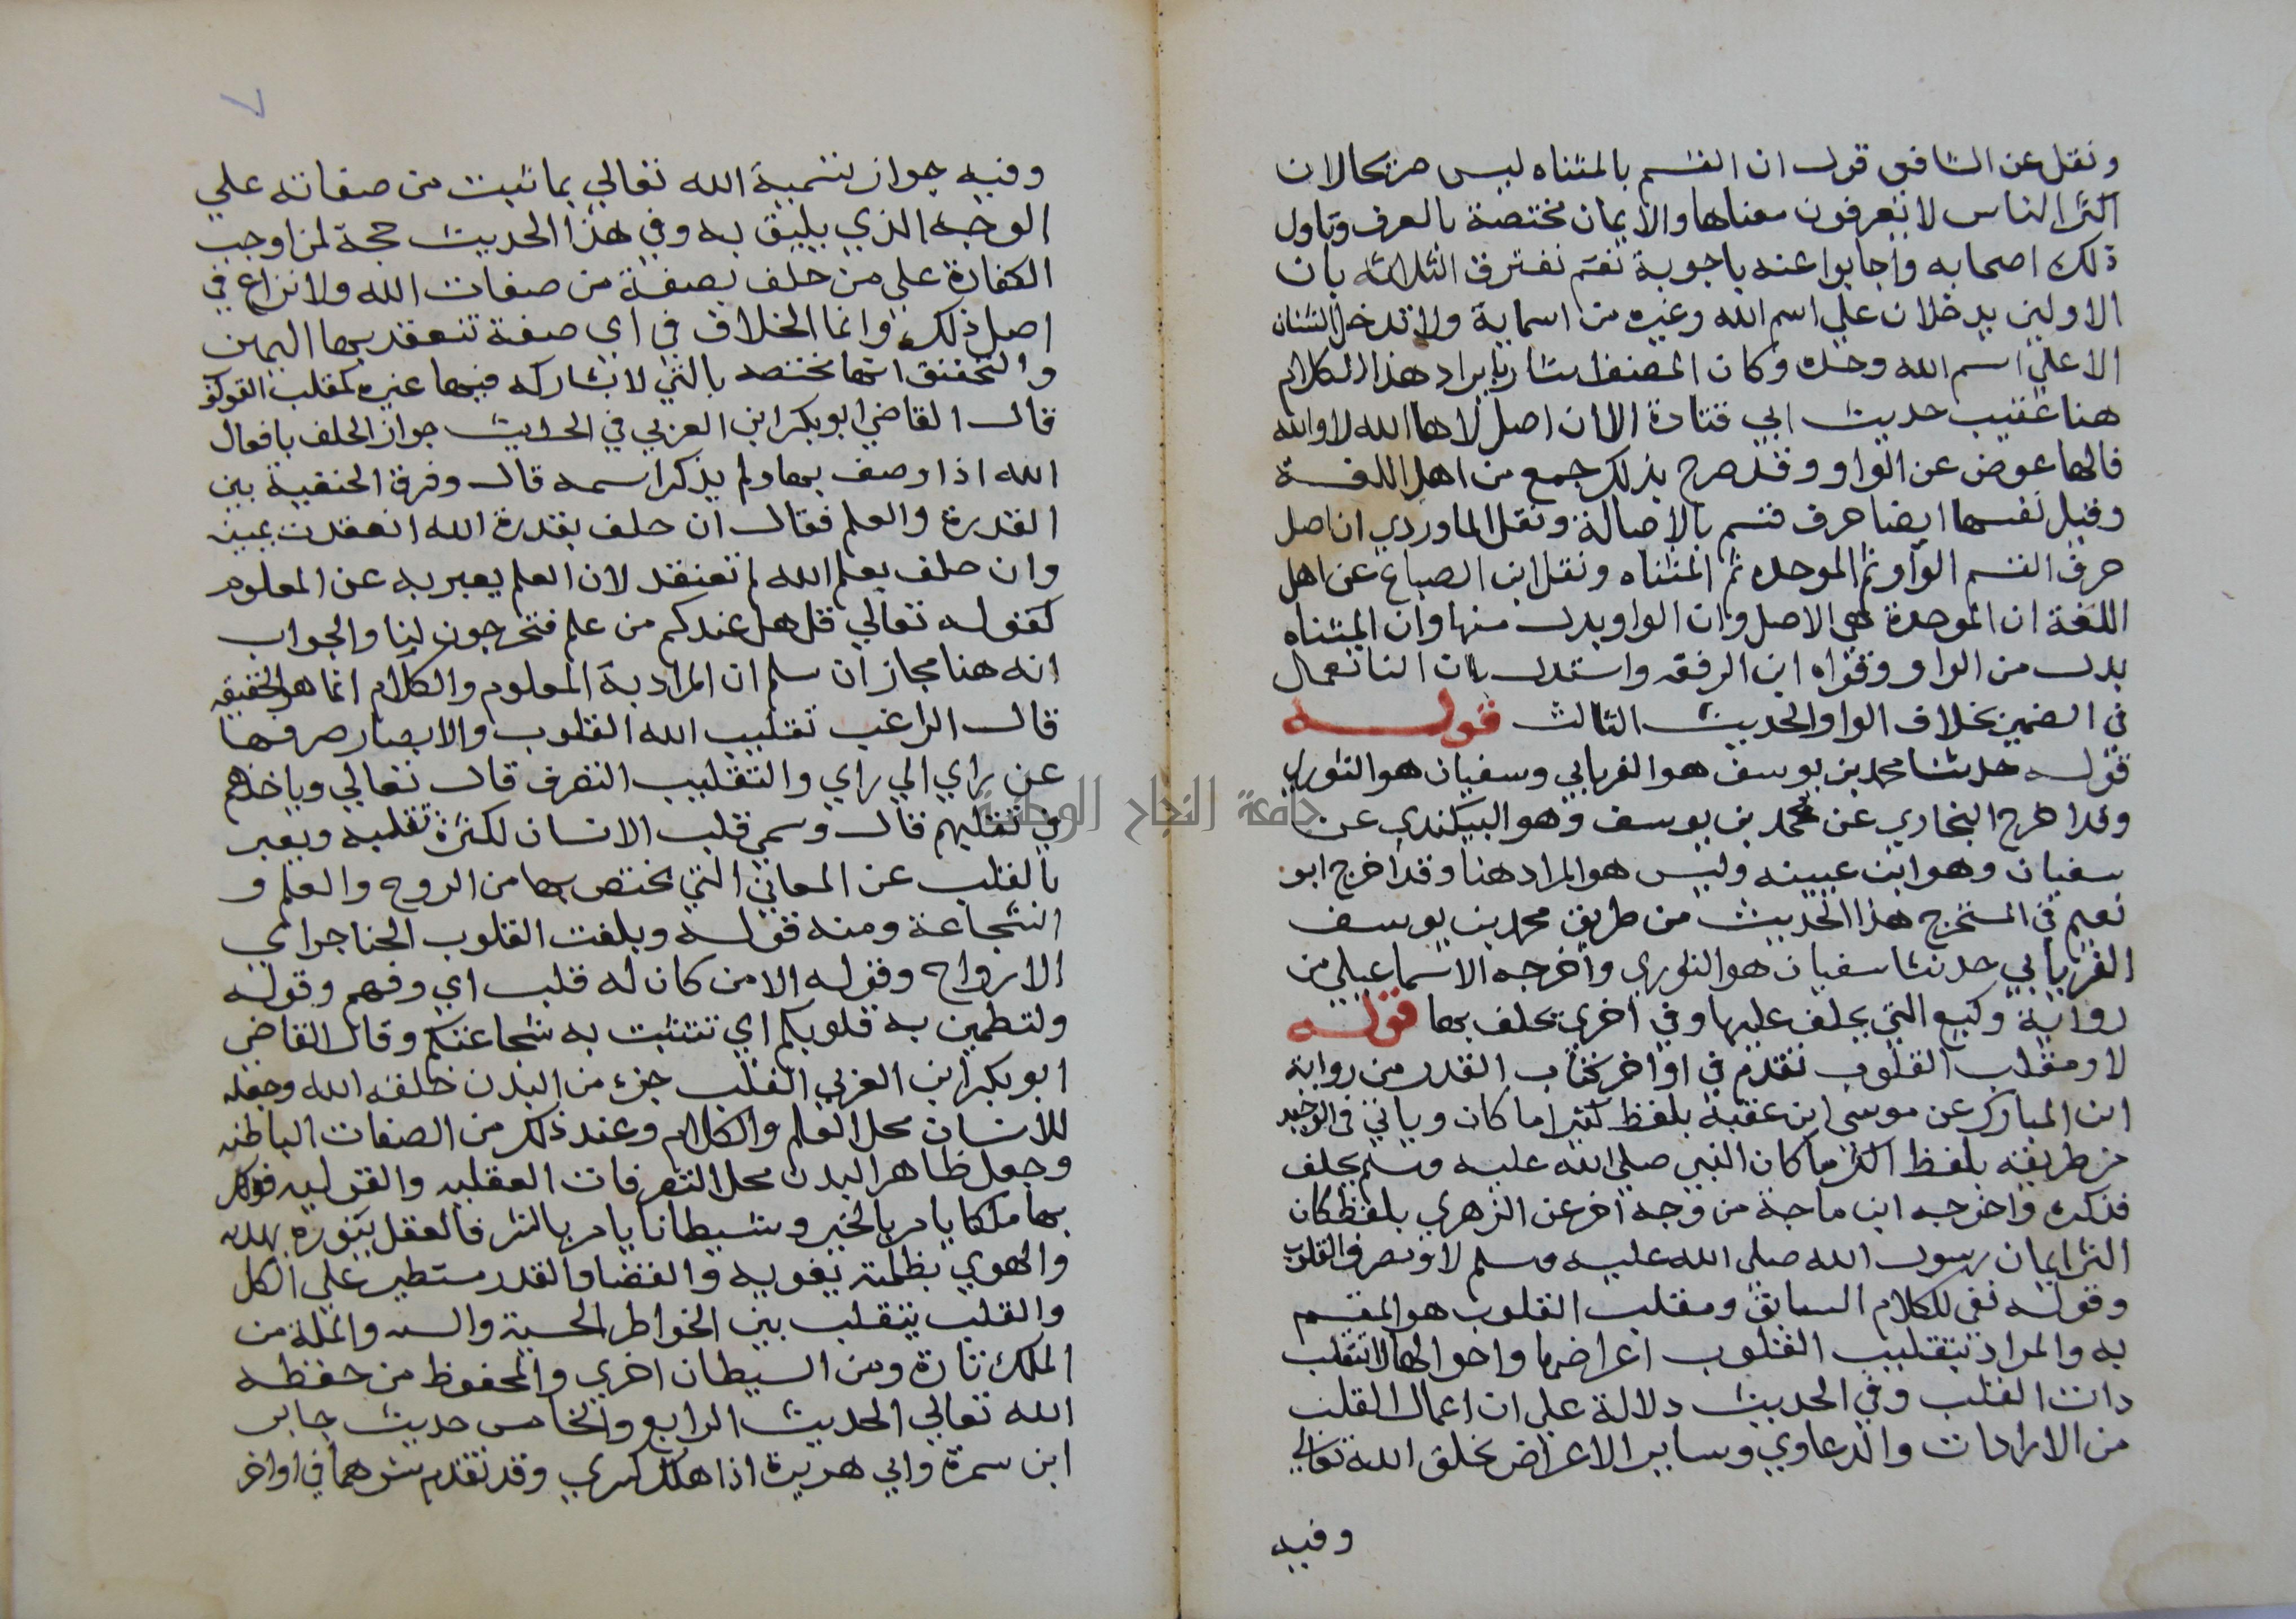 ونقل عن الشافعي قول ان القسم بالمثناه ليس صريحا لان
اكثر الناس لا تعرفون معناها والايمان مختصة بالعرف وتاول
ذلك اصحابه واجابوا عنه باجوبة نعم نفترق الثلاثه بان
الاولين يدخلان علي اسم الله وغيره من اسمايه ولا تدخل المثناه
الا علي اسم الله وحده وكان المصنف اشار بايراد هذا الكلام
هنا عقيب حديث ابي قتادة الا ان اصل لاها الله لا والله
فالها عوض عن الواو وقد صرح بذلك جمع من اهل اللغة
وقيل نفسها ايضا حرف قسم بالاصالة ونقل الماوردي ان اصل
حرف القسم الواو ثم الموحده ثم المثناه ونقل ابن الصباغ عن اهل
اللغة ان الموحدة هي الاصل وان الواو بدل منها وان المثناه
بدل من الواو وقواه ابن الرفعه واستدل بان البا تعمال
في الضمير بخلاف الواو الحديث الثالث قوله
قوله حدثنا محمد بن يوسف هو الفريابي وسفيان هو الثوري
وقد اخرج البخاري عن محمد بن يوسف وهو البيكندي عن
سفيان وهو ابن عيينه وليس هو المراد هنا وقد اخرج ابو
نعيم في المستخرج هذا الحديث من طريق محمد بن يوسف
الفريابي حدثنا سفيان هو الثوري واخرجه الاسماعيلي من
رواية وكيع التي يحلف عليها وفي اخري يحلف بها قوله
لا ومقلب القلوب تقدم في اواخر كتاب القدر من رواية
ابن المبارك عن موسى ابن عقبة بلفظ كثيرا ما كان وياتي في التوحيد
من طريقه بلفظ اكثر ما كان النبي صلى الله عليه وسلم يحلف
فذكره واخرجه ابن ماجة من وجه اخر عن الزهري بلفظ كان
اكثر ايمان رسول الله صلى الله عليه وسلم لا ومصرف القلوب
وقوله نفي للكلام السابق ومقلب القلوب هو المقسم
به والمراد بتقليب القلوب اعراضها واحوالها لا تتقلب
ذات القلب وفي الحديث دلالة علي ان اعمال القلب
من الارادات والدعاوي وساير الاعراض بخلق الله تعالي
وفيه
٧
وفيه جواز تسمية الله تعالي بما ثبت من صفاته علي
الوجه الذي يليق به وفي هذا الحديث حجة لمن اوجب
الكفارة علي من حلف بصفة من صفات الله ولا نزاع في
اصل ذلك وانما الخلاف في اي صفة تنعقد بها اليمين
والتحقيق انها مختصه بالتي لا يشاركه فيها غيره كمقلب القلوب
قال القاضي ابو بكر ابن العربي في الحديث جواز الحلف بافعال
الله اذا وصف بها ولم يذكر اسمه قال وفرق الحنفية بين
القدرة والعلم فقال ان حلف بقدرة الله انعقدت يمينه
وان حلف بعلم الله لم تعنقد لان العلم يعبر به عن المعلوم
كقوله تعالي قل هل عندكم من علم فتخرجون لنا والجواب
انه هنا مجاز ان سلم ان المراد به المعلوم والكلام انما هو الحقيقه
قال الراغب تقليب الله القلوب والابصار صرفها
عن راي الي راي والتقليب التصرف قال تعالي وياخذهم
في تقلبهم قال وسمي قلب الانسان لكثرة تقلبه ويعبر
بالقلب عن المعاني التي يختص بها من الروح والعلم و
الشجاعة ومنه قوله وبلغت القلوب الحناجر اي
الارواح وقوله الا من كان له قلب اي وفهم وقوله
ولتطمين به قلوبكم اي تتثبت به شجاعتكم وقال القاضي
ابو بكر ابن العربي القلب جزء من البدن خلقه الله وجعله
للانسان محل العلم والكلام وعند ذلك من الصفات الباطنه
وجعل ظاهر البدن محل التصرفات العقليه والقوليه فوكل
بها ملكا يامر بالخير وشيطانا يامر بالشر فالعقل بنوره يهديه
والهوي بظلمته يغويه والقضا والقدر مسيطر علي الكل
والقلب يتقلب بين الخواطر الحسنة والسه والملة من
الملك تارة ومن الشيطان اخري والمحفوظ من حفظه
الله تعالي الحديث الرابع والخامس حديث جابر
ابن سمرة وابي هريرة اذا هلك كسري وقد تقدم شرحهما في اواخر
جامعة النجاح الوطنية